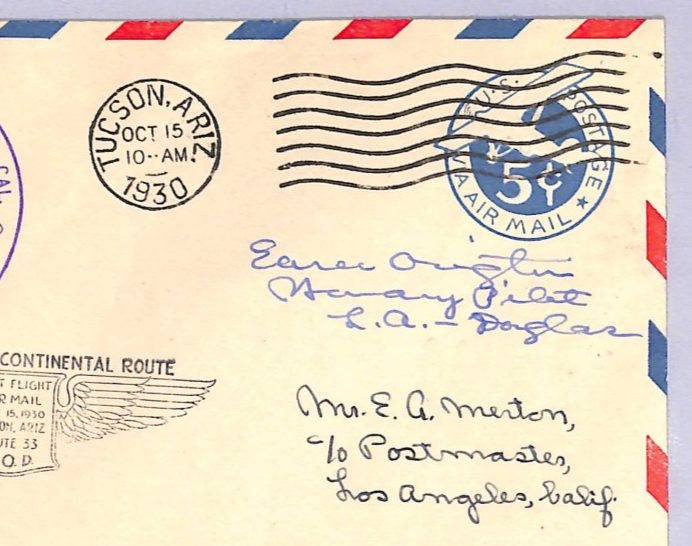 TUCSON, ARIZ.
OCT 15
10-- AM
1930
U.S. POSTAGE
5¢
VIA AIR MAIL
Pilot
L.A. - Douglas
CONTINENTAL ROUTE
T FLIGHT
R MAIL
15, 1930
ON, ARIZ
UTE 33
O.D.
Mr. E. A. Merton,
c/o Postmaster,
Los Angeles, Calif.
CAL.